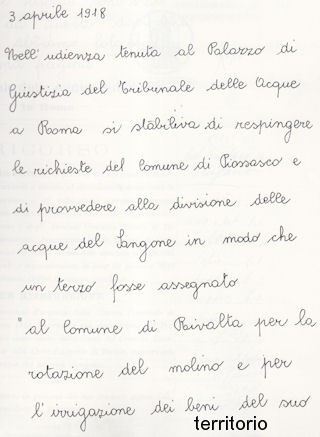 3 aprile 1918
Nell'udienza tenuta al Palazzo di
Giustizia del Tribunale delle Acque
a Roma si stabiliva di respingere
le richieste del Comune di Piossasco e
di provvedere alla divisione delle
acque del Sangone in modo che
un terzo fosse assegnato
"al Comune di Rivalta per la
rotazione del molino e per
l'irrigazione dei beni del suo
territorio